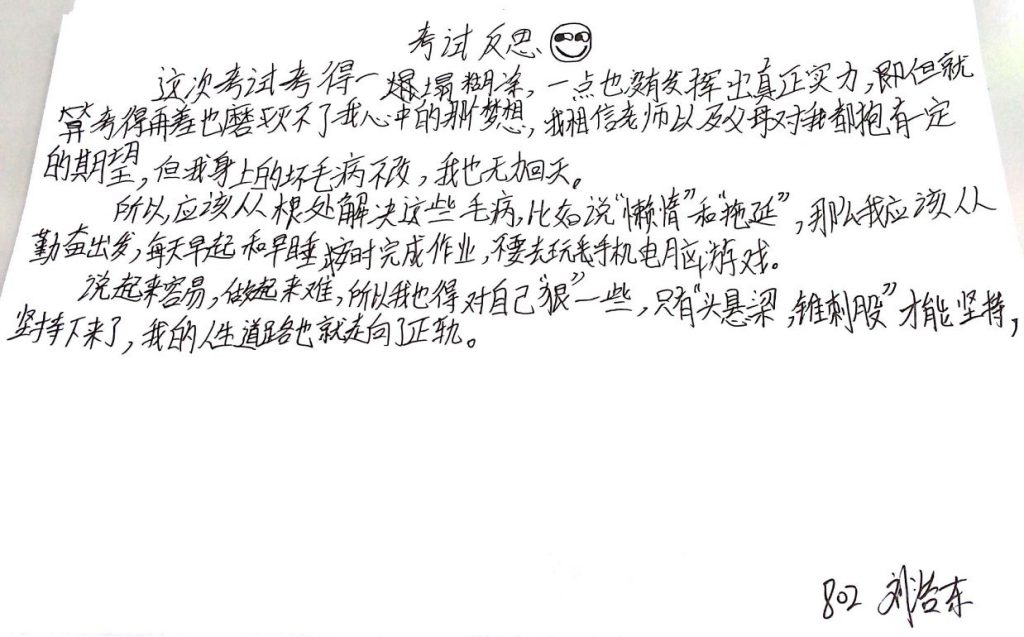 考试反思
这次考试考得一塌糊涂，一点也没有发挥出真正实力，即但就
算考得再差也磨灭不了我心中的那个梦想，我相信老师以及父母对我都抱有一定
的期望，但我身上的坏毛病不改，我也无力回天。
所以，应该从根处解决这些毛病，比如说“懒惰”和“拖延”，那么我应该从
勤奋出发，每天早起和早睡，按时完成作业，不要去玩手机电脑游戏。
说起来容易，做起来难，所以我也得对自己“狠”一些，只有“头悬梁，锥刺股”才能坚持，
坚持下来了，我的人生道路也就走向了正轨。
802 刘浩东